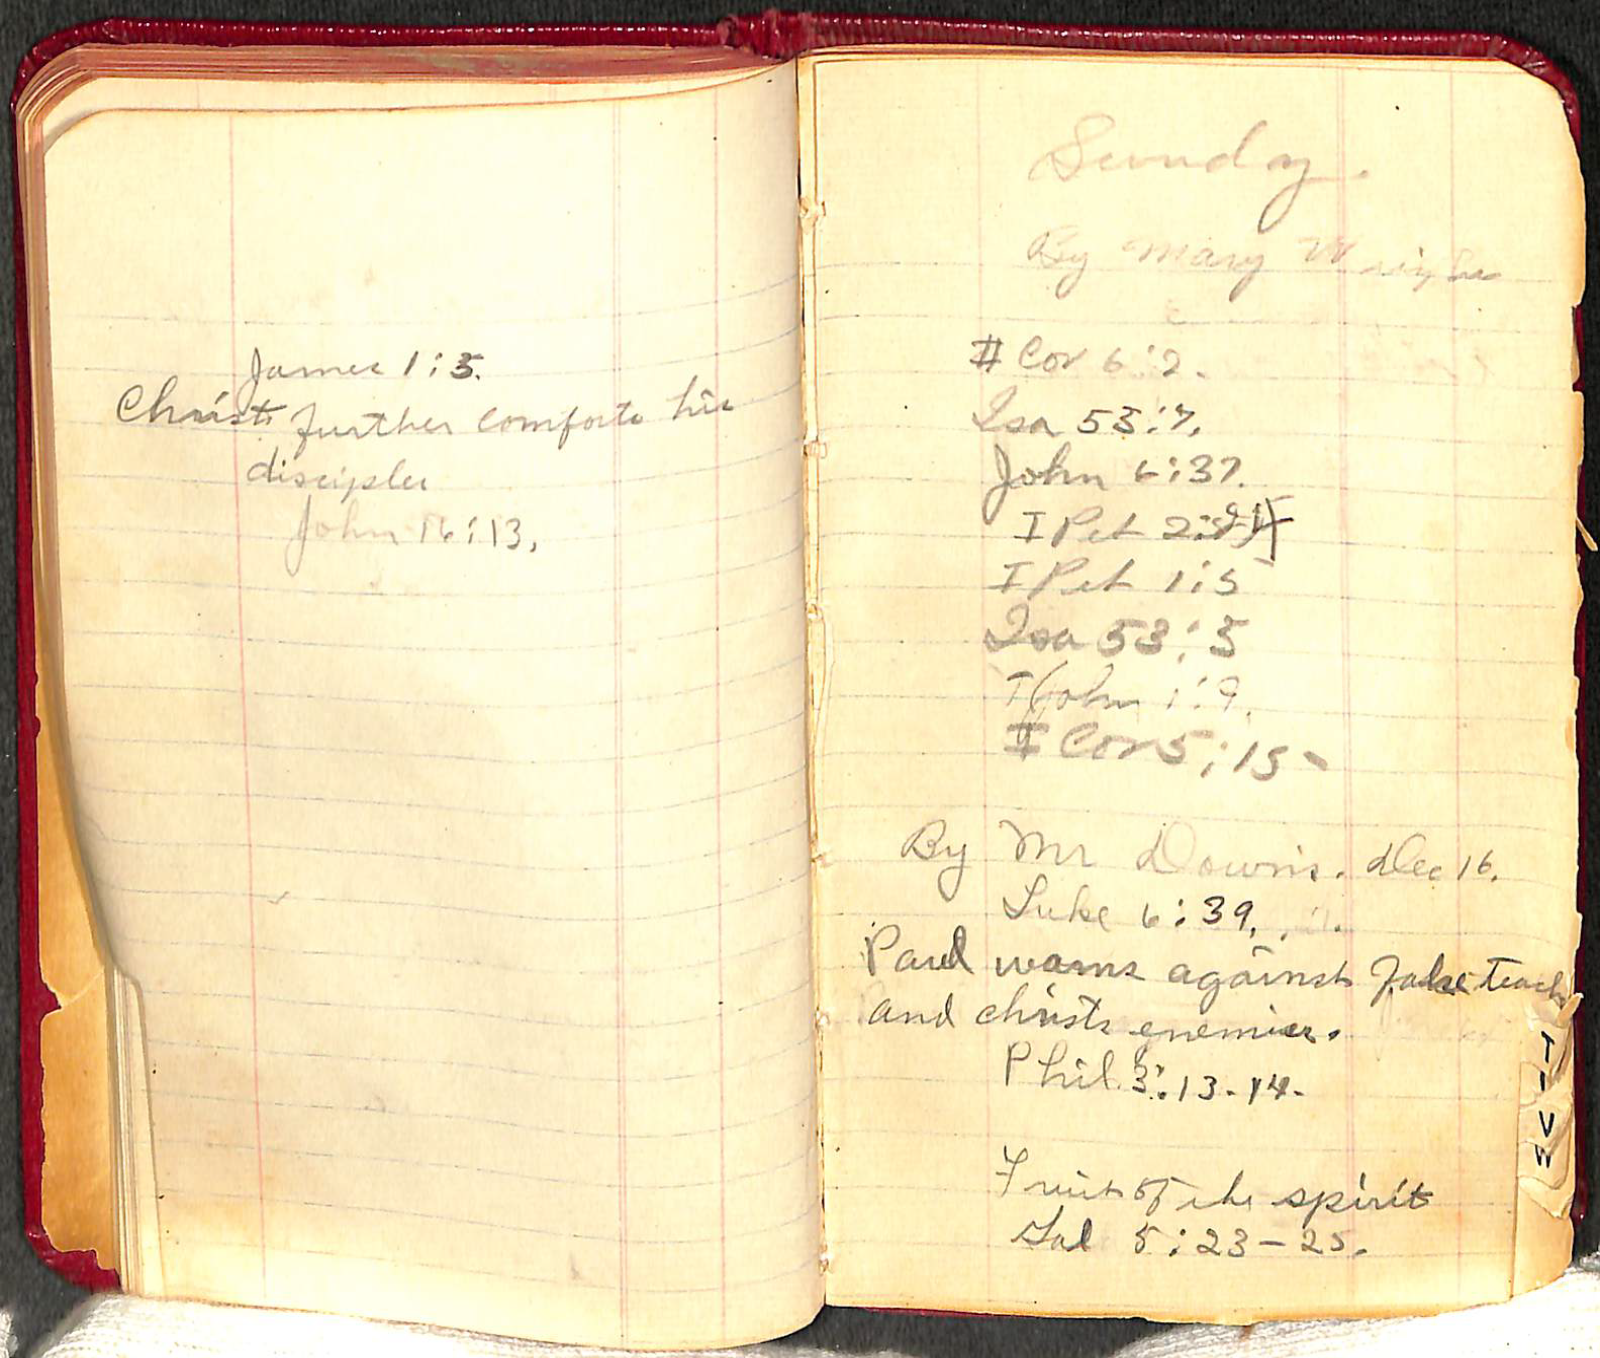 James 1:5.
Christ further comforts his
disciples
John 16:13.
Sunday.
By Mary
II Cor 6:2.
Isa 53:7.
John 6:37.
I Pet 2:24
I Pet 1:5
Isa 53:5
I John 1:9.
II Cor 5:15-
By Mr Downs. Dec 16.
Luke 6:39.
Paul warns against false teach
and christs enemies.
Phil 3:13-14.
Fruit of the spirit
Gal 5:23-25.
T
U
V
W